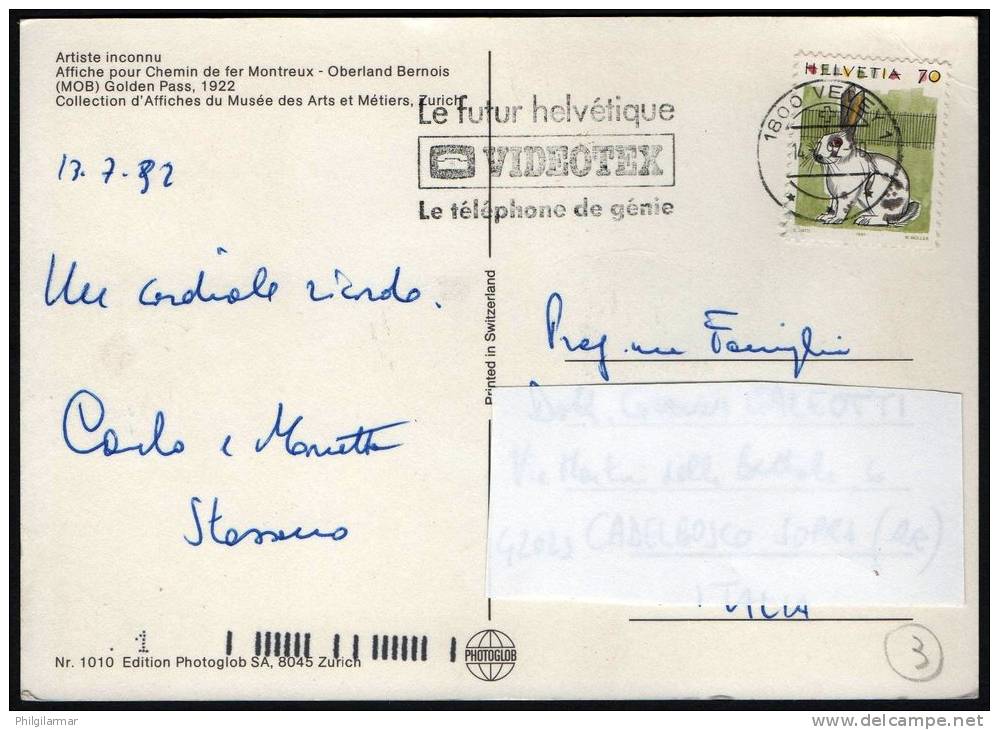 Artiste inconnu
Affiche pour Chemin de fer Montreux - Oberland Bernois
(MOB) Golden Pass, 1922
Collection d'Affiches du Musée des Arts et Métiers, Zurich
Le futur helvétique
VIDEOTEX
Le téléphone de génie
HELVETIA 70
1800 VEVEY 1
13.7.92
Un cordiale ricordo.
Carlo e Marietta
Stassano
Printed in Switzerland
Famiglia
GALEOTTI
42023 CADELBOSCO SOPRA (RE)
ITALIA
1
Nr. 1010 Edition Photoglob SA, 8045 Zurich
PHOTOGLOB
3
Philgilarmar
www.delcampe.net